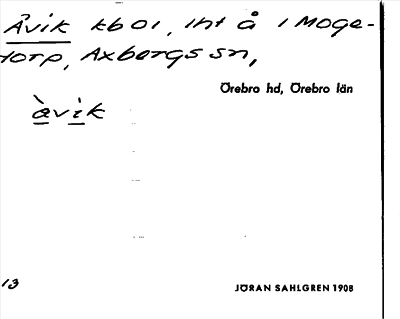 Åvik kb 01, int å i Moge-
torp, Axbergs sn,
Örebro hd, Örebro län
àvìk
13
JÖRAN SAHLGREN 1908